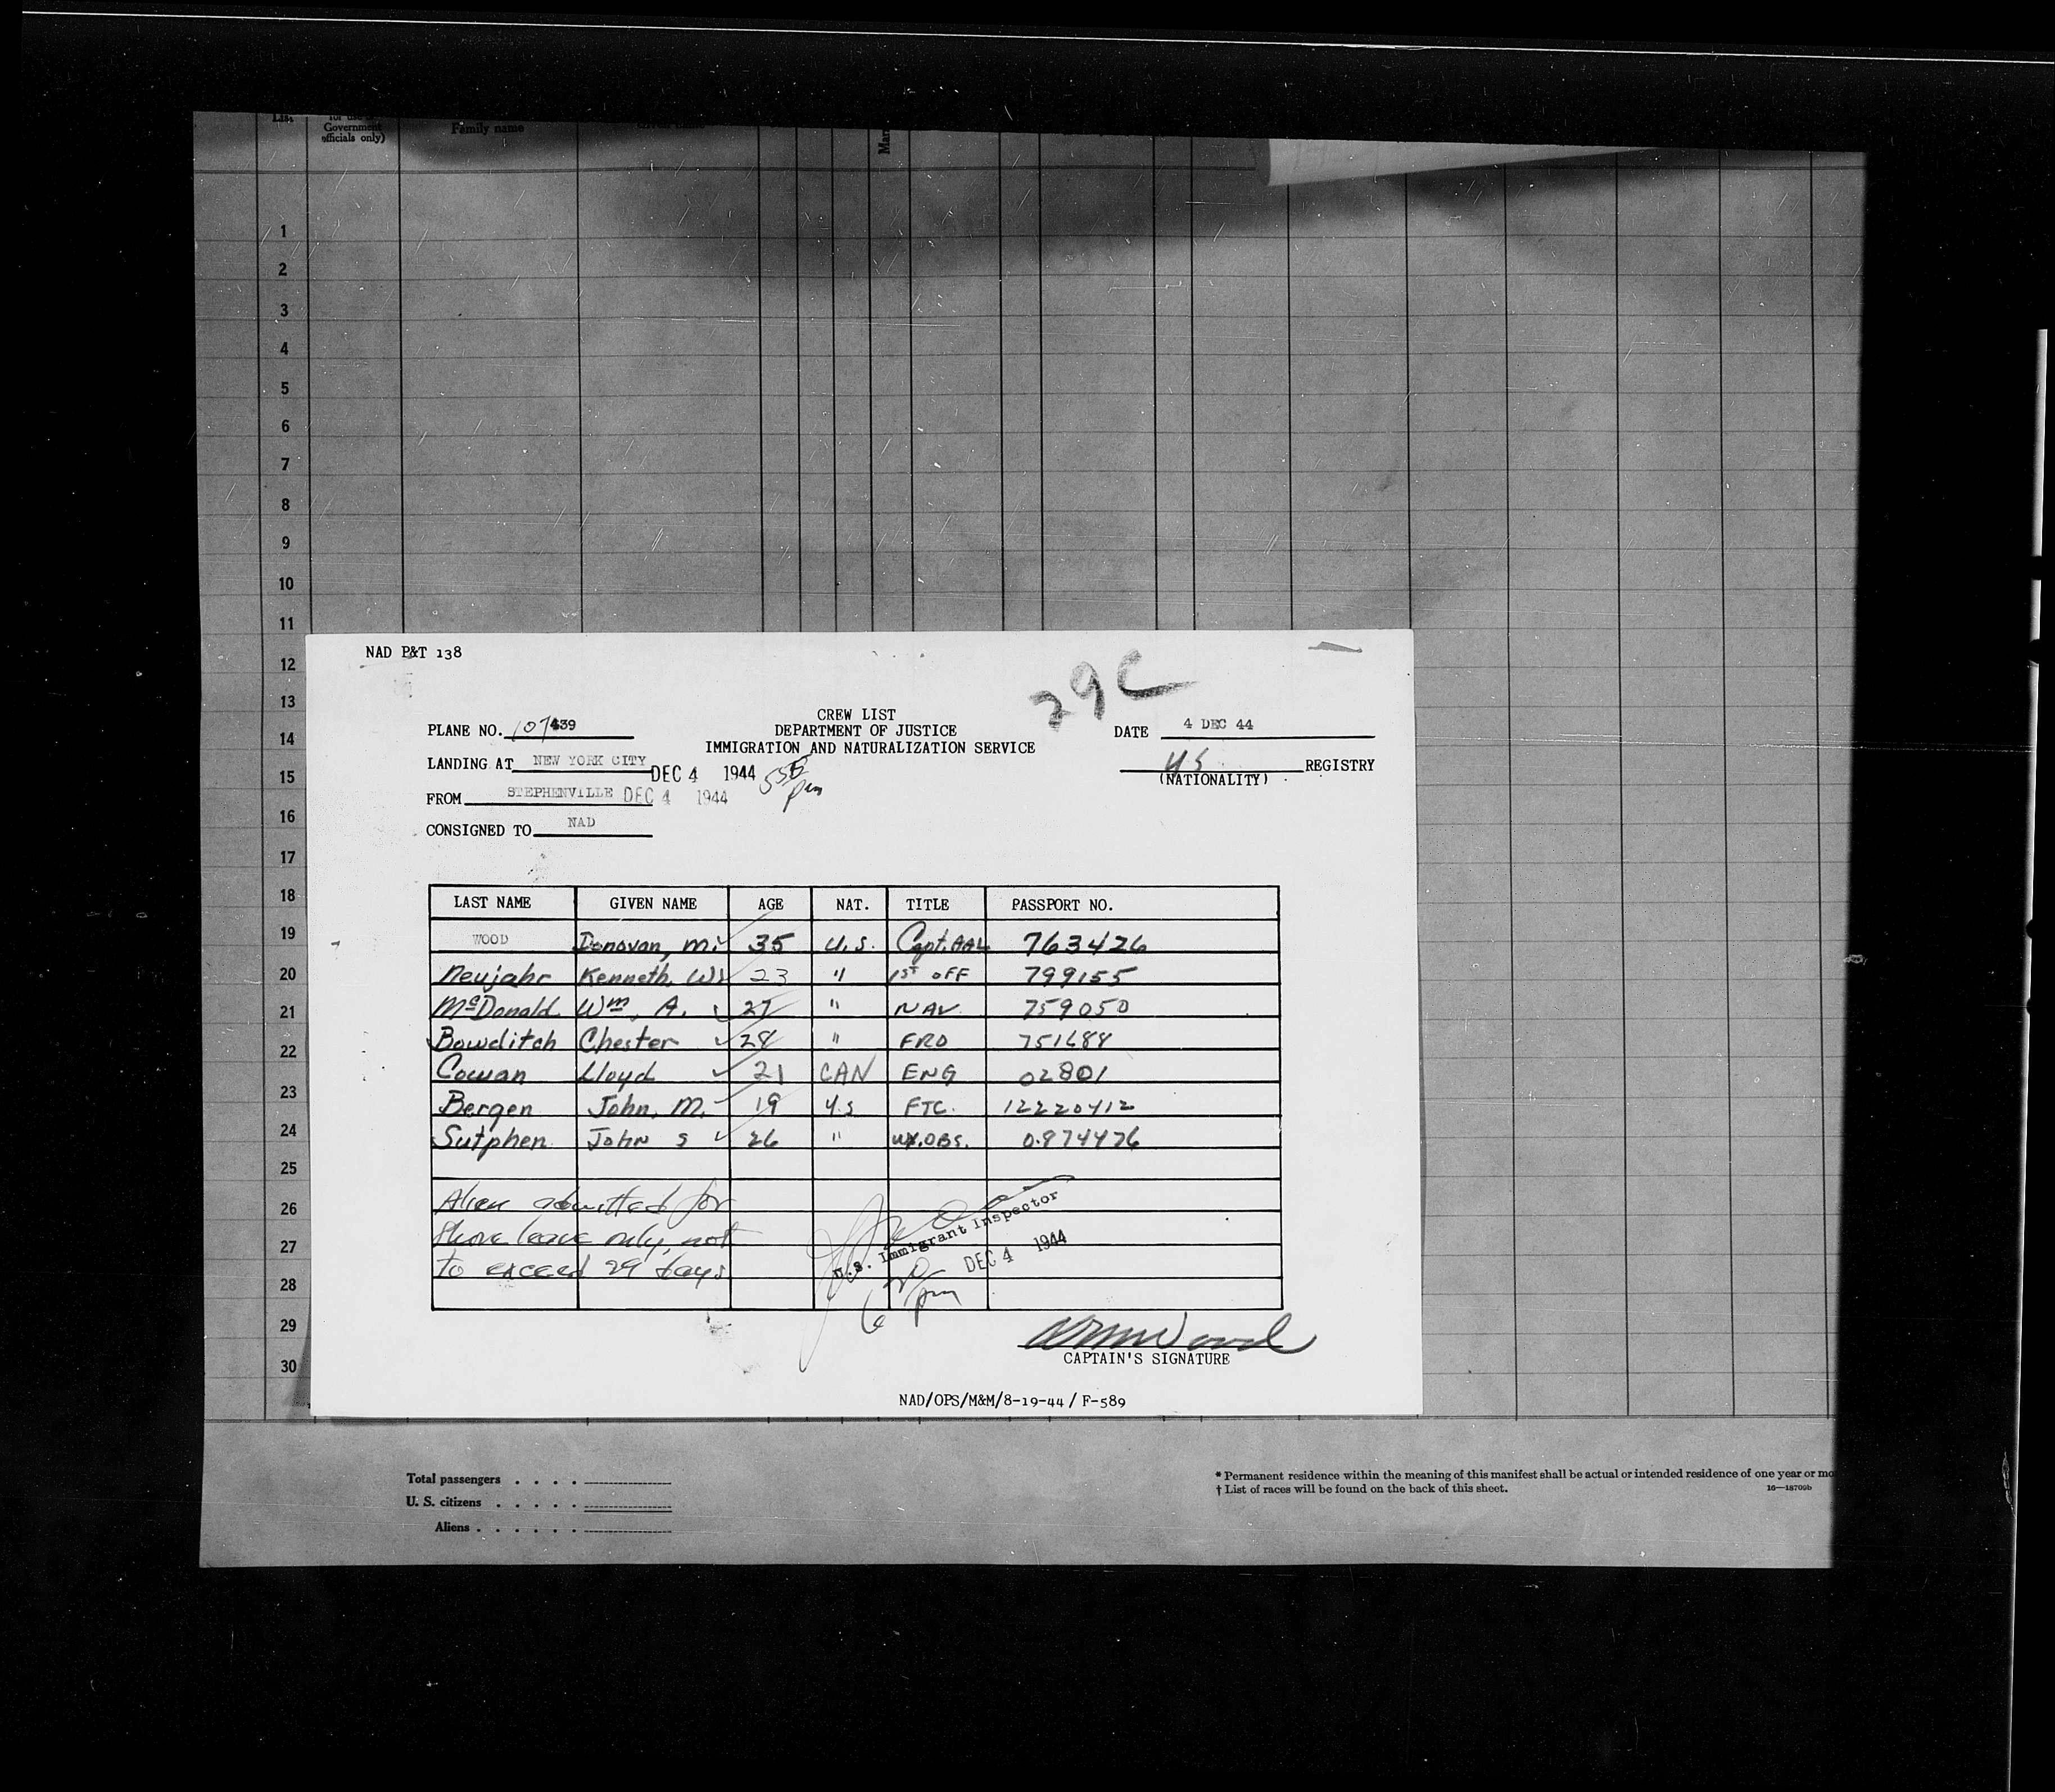 List
for use by
Government
officials only)
Family name
Given name
Mar
1
2
3
4
5
6
7
8
9
10
11
12
13
14
15
16
17
18
19
20
21
22
23
24
25
26
27
28
29
30
NAD P&T 138
29C
CREW LIST
DEPARTMENT OF JUSTICE
IMMIGRATION AND NATURALIZATION SERVICE
PLANE NO. 107439
DATE 4 DEC 44
LANDING AT NEW YORK CITY DEC 4 1944 555 pm
US REGISTRY
(NATIONALITY)
FROM STEPHENVILLE DEC 4 1944
CONSIGNED TO NAD
LAST NAME GIVEN NAME AGE NAT. TITLE PASSPORT NO.
WOOD Donovan, M. 35 U.S. Capt. AAL 763426
Neujahr Kenneth, W. 23 " 1ST OFF 799155
McDonald Wm, A. 27 " NAV 759050
Bowditch Chester 28 " FRO 751688
Cowan Lloyd 21 CAN ENG 02801
Bergen John, M. 19 U.S FTC. 12220412
Sutphen John S 26 " WX.OBS. 0.874476
Alien admitted for
Shore leave only, not
to exceed 29 days
U.S. Immigrant Inspector
DEC 4 1944
6 20 pm
DMWood
CAPTAIN'S SIGNATURE
NAD/OPS/M&M/8-19-44 / F-589
Total passengers . . . .
U. S. citizens . . . . .
Aliens . . . . . .
* Permanent residence within the meaning of this manifest shall be actual or intended residence of one year or mo
† List of races will be found on the back of this sheet.
16—18709b